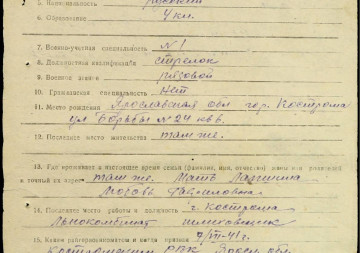 5. Национальность русский
6. Образование 4 кл.
7. Военно-учетная специальность №1
8. Должностная квалификация стрелок
9. Военное звание рядовой
10. Гражданская специальность нет
11. Место рождения Ярославская обл гор. Кострома
ул Борьбы № 24 кв 6.
12. Постоянное место жительства там же.
13. Где проживает в настоящее время семья (фамилия, имя, отчество) жены или родителей
и точный их адрес там же. Мать
14. Последнее место работы и должность г. Кострома
Льнокомбинат
15. Каким райвоенкоматом и когда призван 7/III-41 г.
Костромским РВК Яросл. обл.